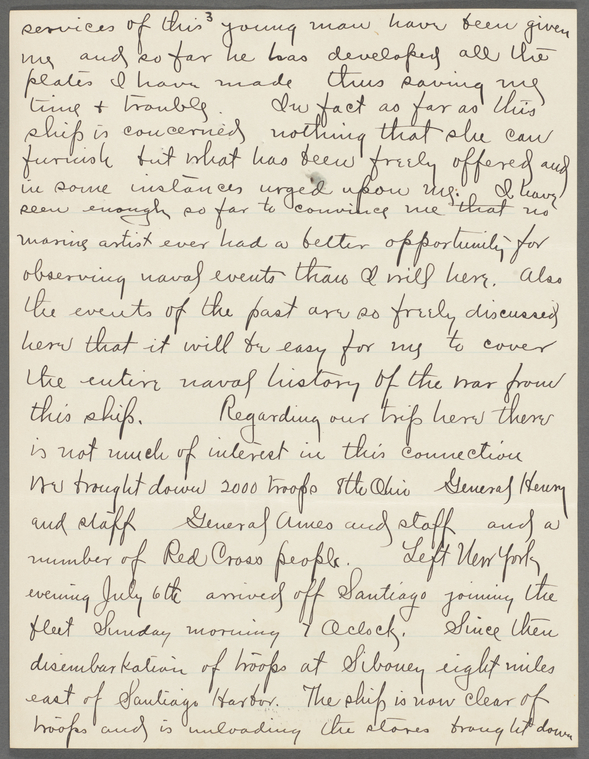 3
services of this young man have been given
me and so far he has developed all the
plates I have made thus saving me
time & trouble. In fact as far as this
ship is concerned nothing that she can
furnish but what has been freely offered and
in some instances urged upon me. I have
seen enough so far to convince me that no
marine artist ever had a better opportunity for
observing naval events than I will here. Also
the events of the past are so freely discussed
here that it will be easy for me to cover
the entire naval history of the war from
this ship. Regarding our trip here there
is not much of interest in this connection
We brought down 2000 troops 8th Ohio General Henry
and staff General Ames and staff and a
number of Red Cross people. Left New York
evening July 6th arrived off Santiago joining the
fleet Sunday morning 7 Oclock. Since then
disembarkation of troops at Siboney eight miles
east of Santiago Harbor. The ship is now clear of
troops and is unloading the stores brought down